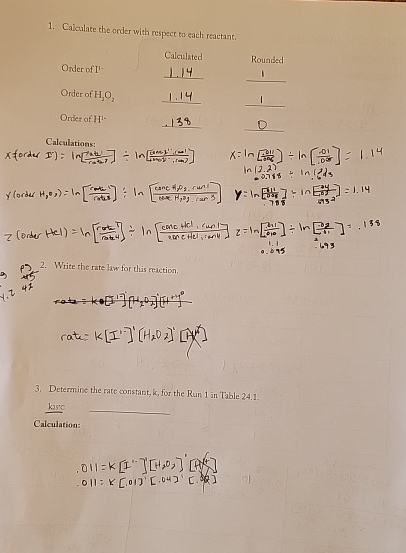 1. Calculate the order with respect to each reactant.
Calculated Rounded
Order of I¹⁻ 1.14 1
Order of H₂O₂ 1.14 1
Order of H¹⁺ .138 0
Calculations:
X (order I⁻) = ln[rate1/rate2] ÷ ln[conc I⁻, run1/conc I⁻, run2] X = ln[.011/.005] ÷ ln[.01/.005] = 1.14
ln(2.2) ÷ ln(2)
0.788
Y (order H₂O₂) = ln[rate1/rate3] ÷ ln[conc H₂O₂, run1/conc H₂O₂, run3] Y = ln[.011/.005] ÷ ln[.04/.02] = 1.14
.788 .693
Z (order HCl) = ln[rate1/rate4] ÷ ln[conc HCl, run1/conc HCl, run4] Z = ln[.011/.010] ÷ ln[.02/.01] = .138
1.1 2
0.095 .693
2. Write the rate law for this reaction.
rate = k[I¹⁻]¹[H₂O₂]¹
3. Determine the rate constant, k, for the Run 1 in Table 24.1.
k25°C
Calculation:
.011 = K[I¹⁻]¹[H₂O₂]¹
.011 = K[.01]¹[.04]¹